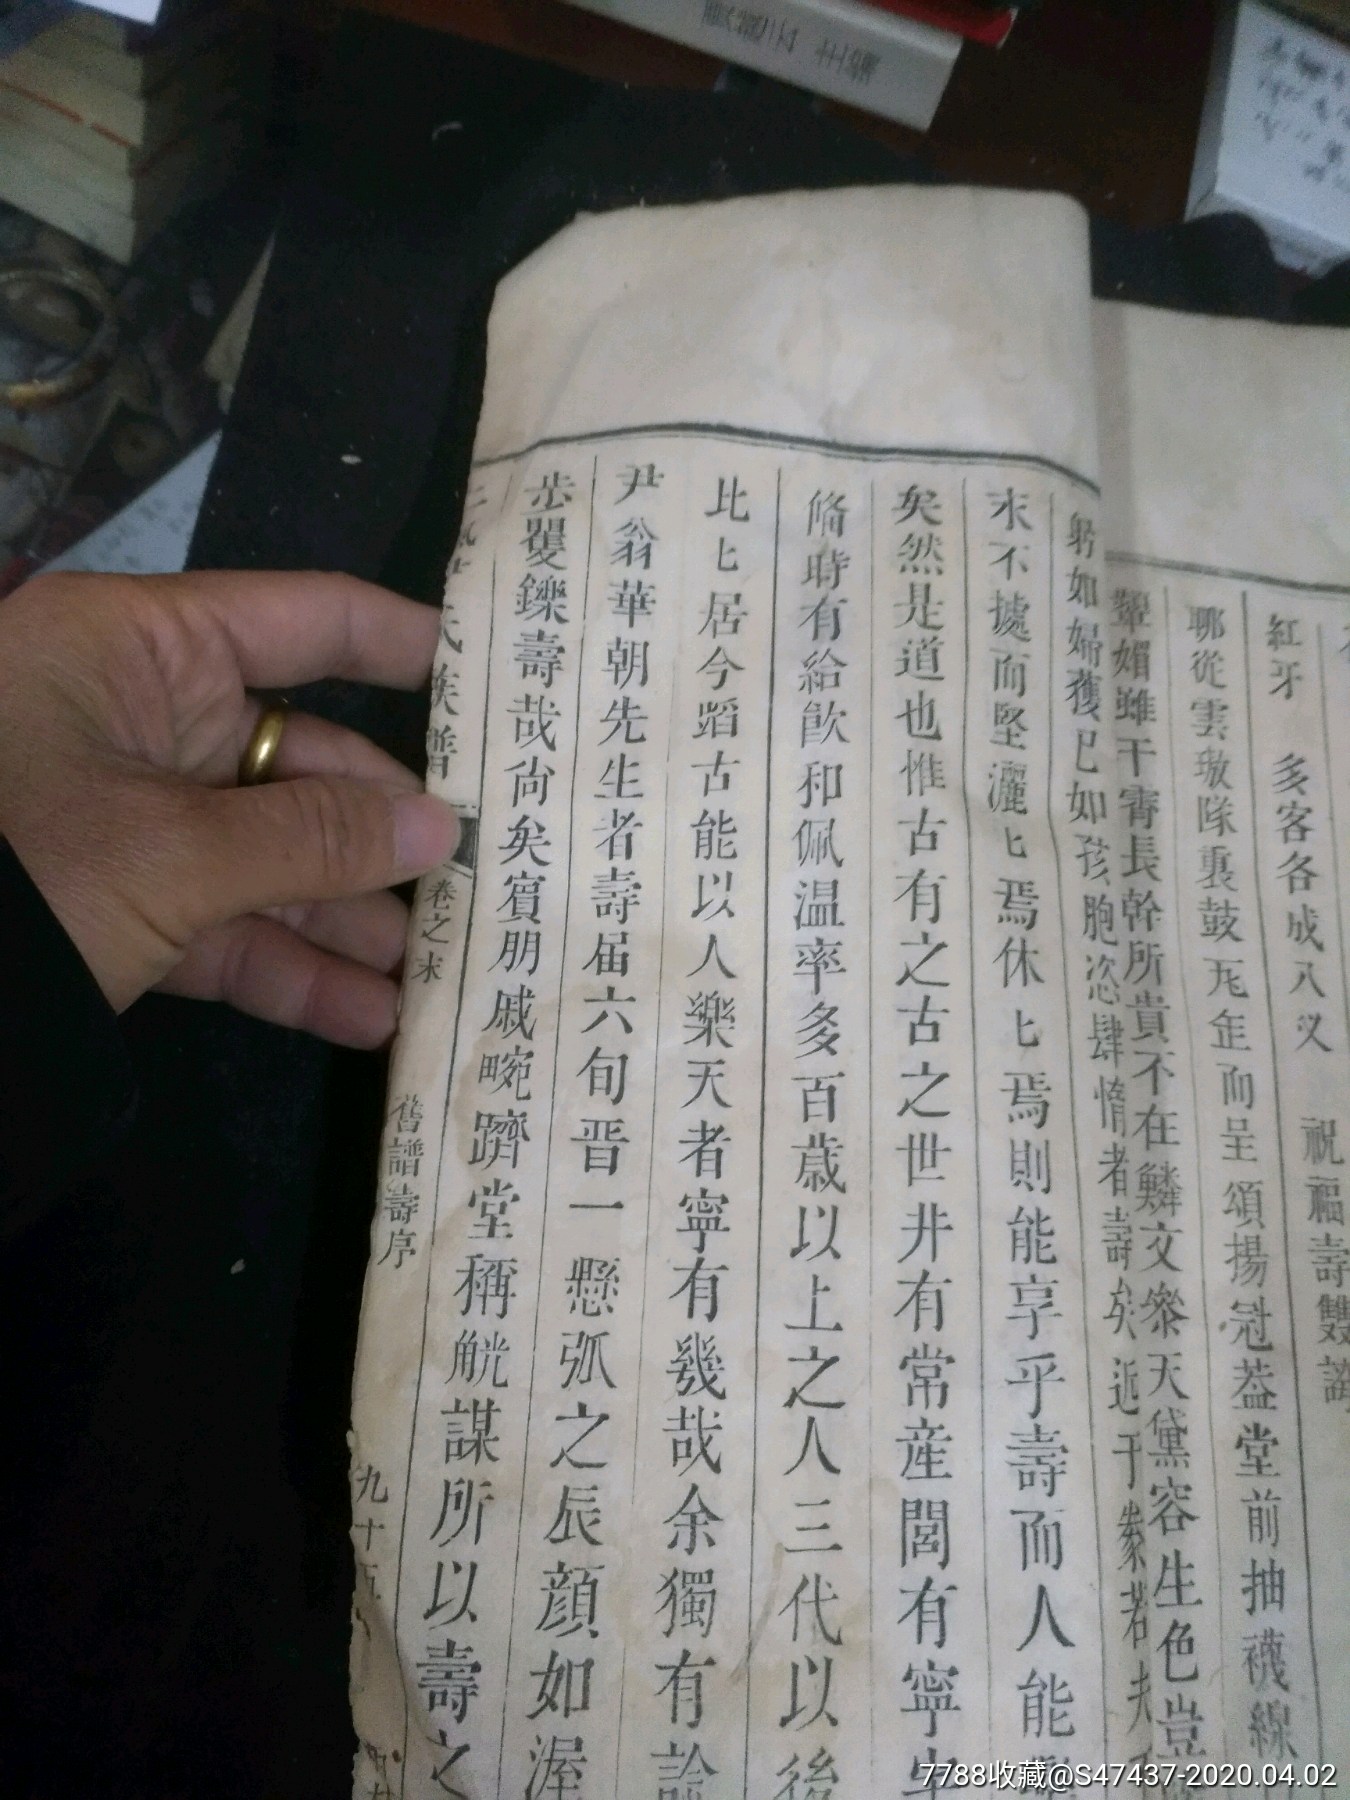 祝福壽雙
紅牙 多客各成八义
聊從雲璈隊裏鼓兕年而呈頌揚冠葢堂前抽襪線
媚雖干霄長幹所貴不在鱗文黛天黛容生色豈
躬如婦獲已如孩胞恣肆惰者壽矣近于若夫
末不據而堅灑匕焉休匕焉則能享乎壽而人能
矣然是道也惟古有之古之世井有常産閭有寧
脩時有給飮和佩温率多百歳以上之人三代以後
比匕居今蹈古能以人樂天者寧有幾哉余獨有論
尹翁華朝先生者壽届六旬晋一懸弧之辰顔如渥
步矍鑠壽哉尙矣賓朋戚畹躋堂稱觥謀所以壽之
氏族譜 卷之末 舊譜壽序 九十五
7788收藏@S47437-2020.04.02